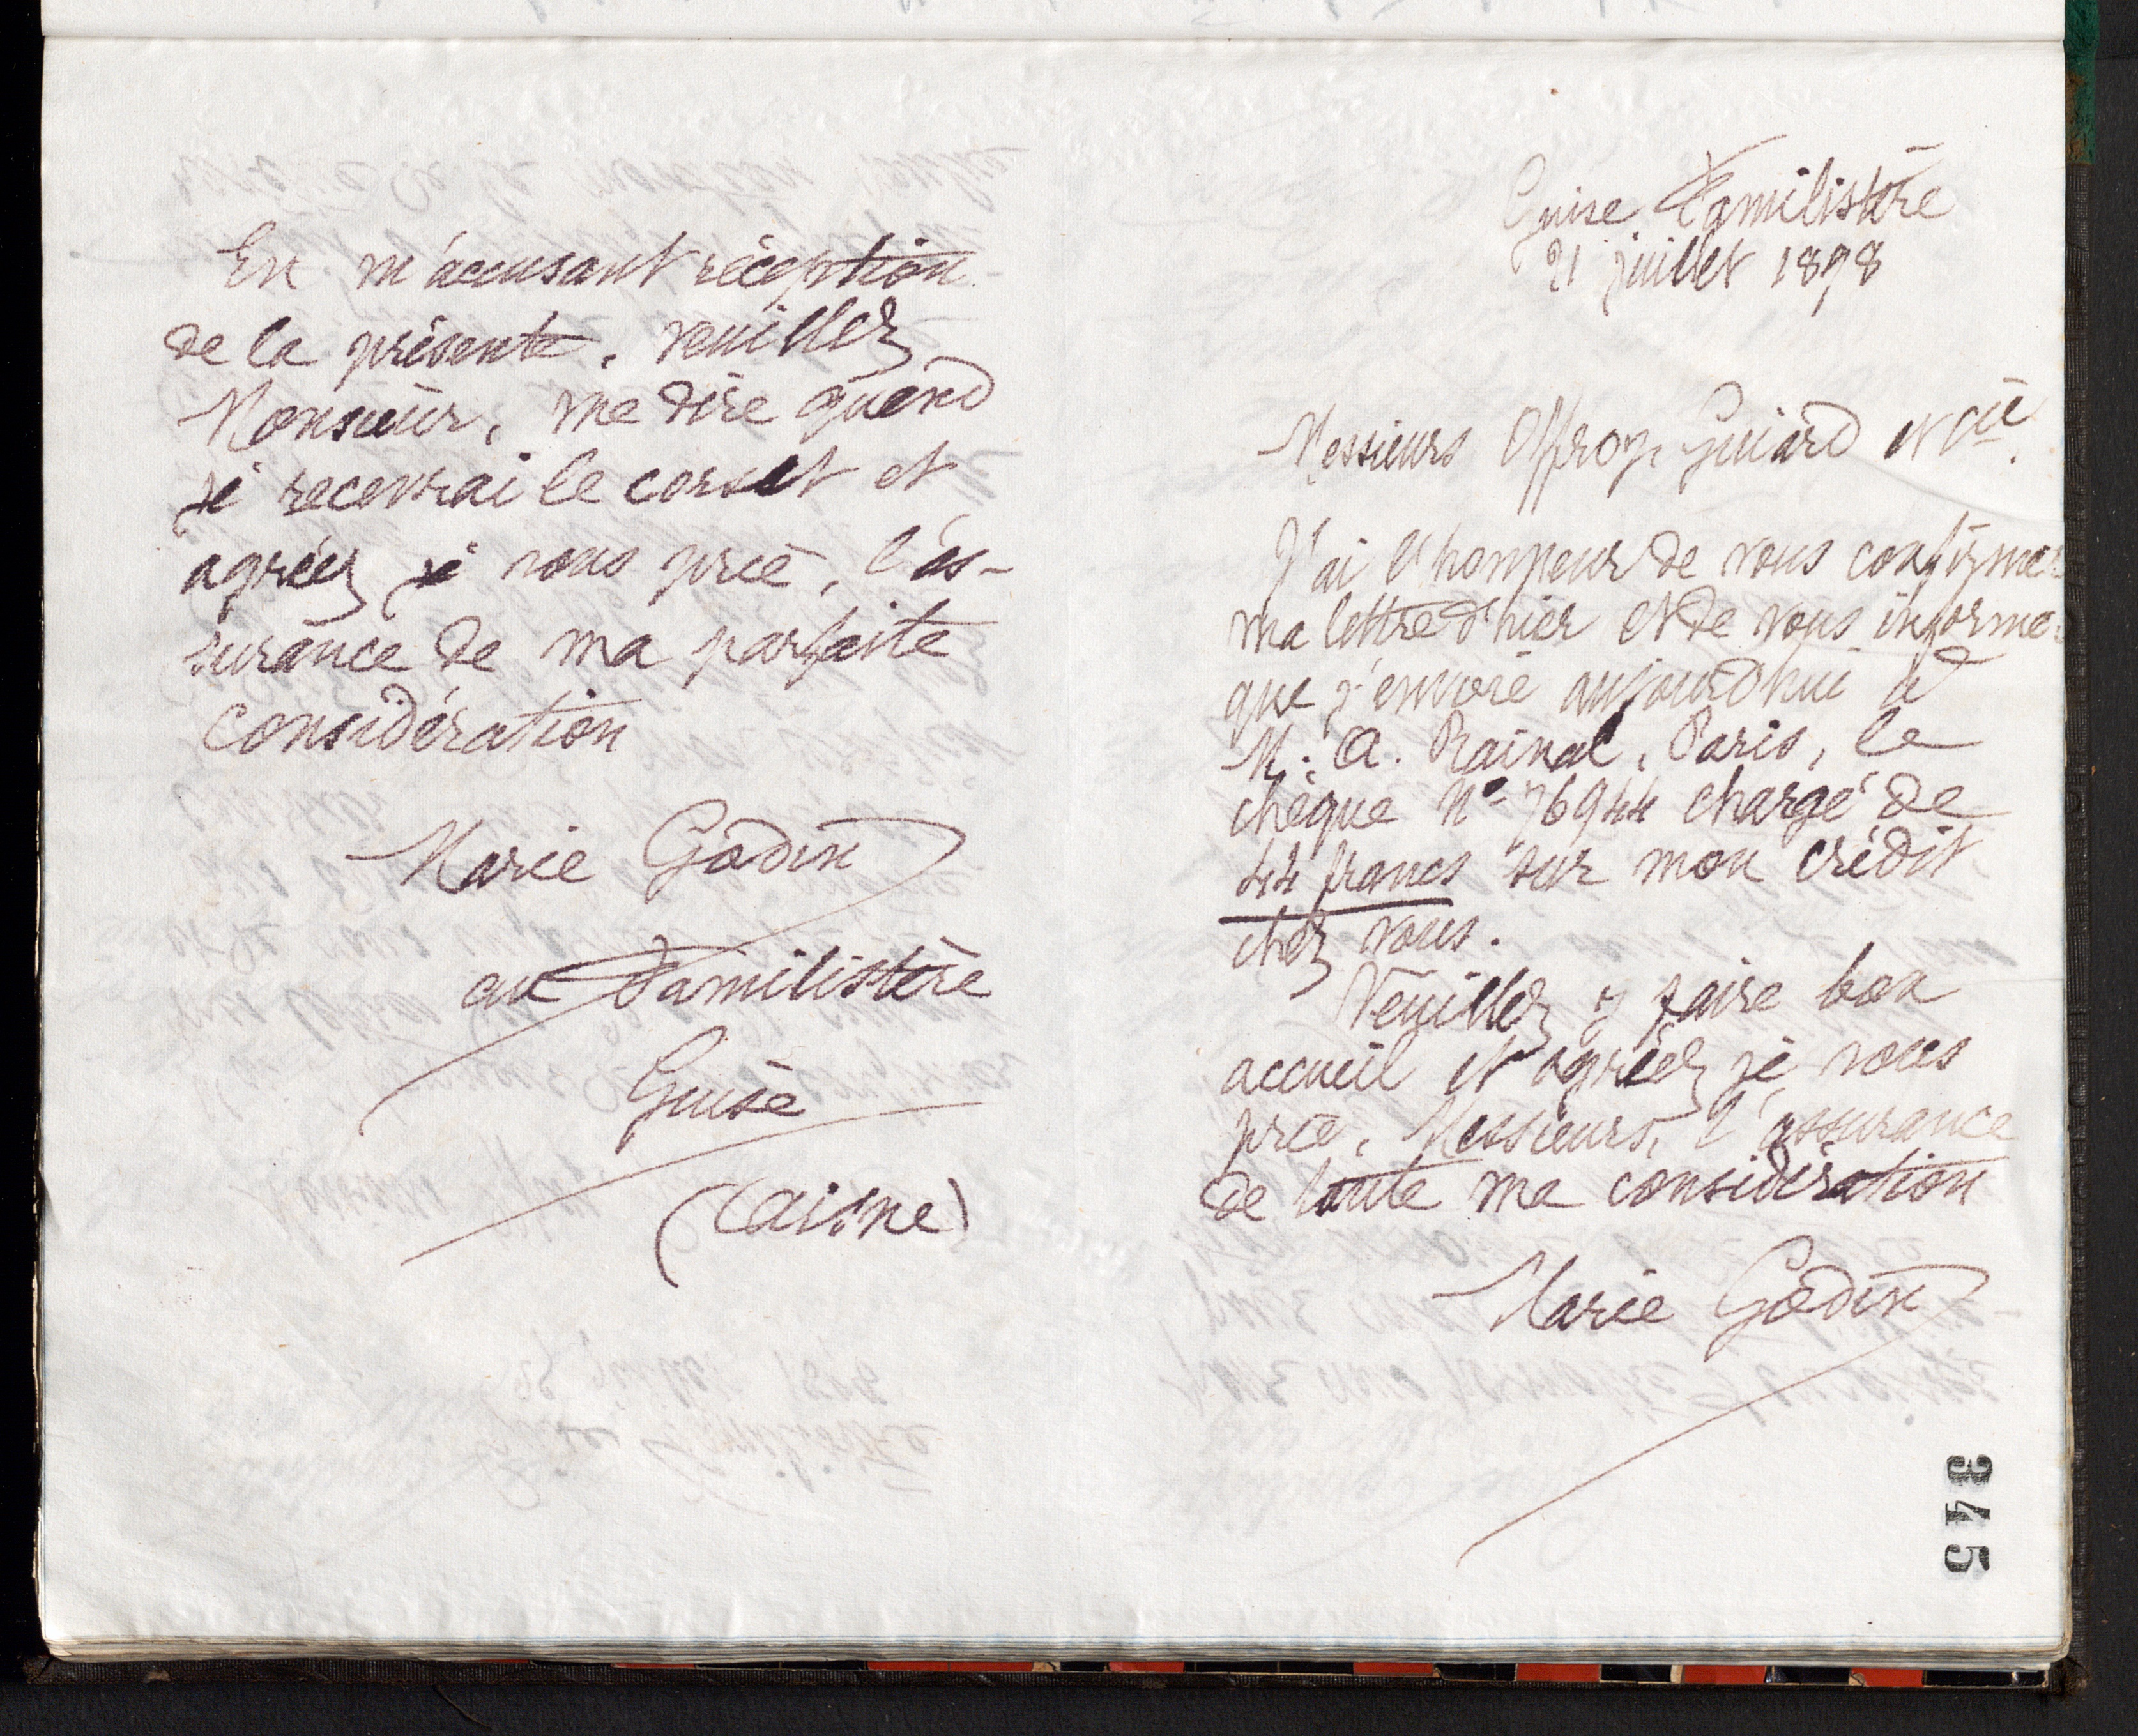 En m'accusant réception
de la présente, veuillez
Monsieur, me dire quand
je recevrai le corset et
agréez je vous prie, l'as-
surance de ma parfaite
considération
Marie Godin
au Familistère
Guise
(Aisne)
Guise Familistère
21 juillet 1898
Messieurs Offroy, Guiard et Cie.
J'ai l'honneur de vous confirmer
ma lettre d'hier et de vous informer
que j'envoie aujourd'hui à
M. A. Rainal, Paris, le
chèque No 76944 chargé de
44 francs sur mon crédit
chez vous.
Veuillez y faire bon
accueil et agréez je vous
prie, Messieurs, l'assurance
de toute ma considération
Marie Godin
345